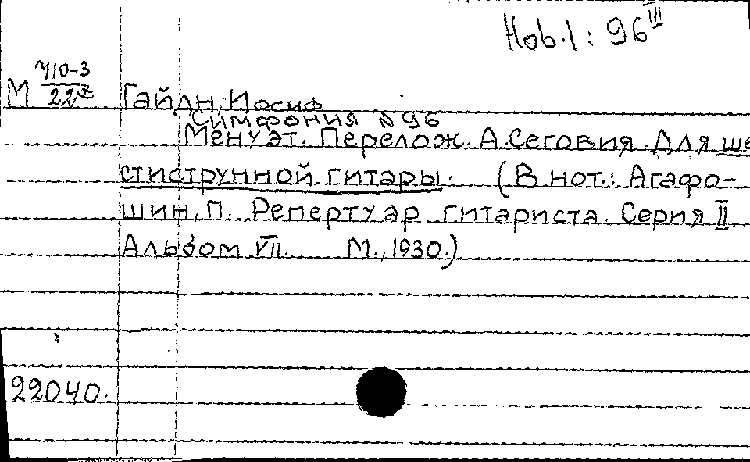 Hob. I : 96 III
М 410-3
22
Гайдн, Иосиф
Симфония №96
Менуэт. Перелож. А. Сеговия для ше-
стиструнной гитары. (В нот.: Агафо-
шин, П. Репертуар гитариста. Серия II
Альбом VII. М., 1930.)
22040.